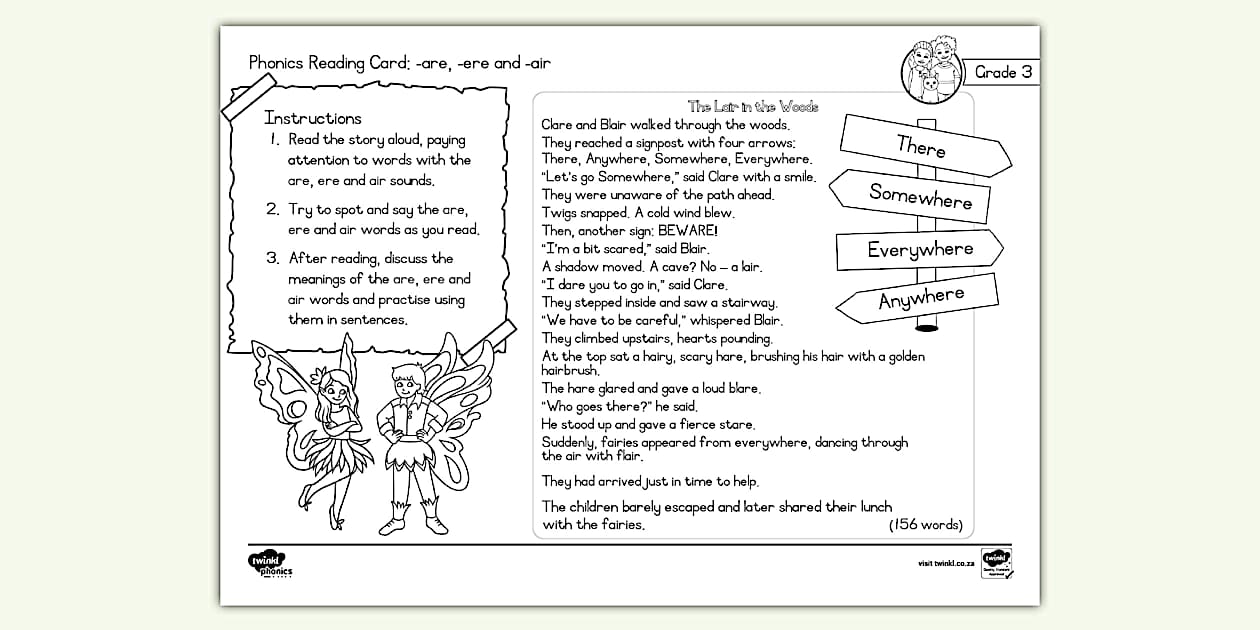 Phonics Reading Card: -are, -ere and -air
Grade 3
Instructions
1. Read the story aloud, paying
attention to words with the
are, ere and air sounds.
2. Try to spot and say the are,
ere and air words as you read.
3. After reading, discuss the
meanings of the are, ere and
air words and practise using
them in sentences.
The Lair in the Woods
Clare and Blair walked through the woods.
They reached a signpost with four arrows:
There, Anywhere, Somewhere, Everywhere.
“Let’s go Somewhere,” said Clare with a smile.
They were unaware of the path ahead.
Twigs snapped. A cold wind blew.
Then, another sign: BEWARE!
“I’m a bit scared,” said Blair.
A shadow moved. A cave? No – a lair.
“I dare you to go in,” said Clare.
They stepped inside and saw a stairway.
“We have to be careful,” whispered Blair.
They climbed upstairs, hearts pounding.
At the top sat a hairy, scary hare, brushing his hair with a golden
hairbrush.
The hare glared and gave a loud blare.
“Who goes there?” he said.
He stood up and gave a fierce stare.
Suddenly, fairies appeared from everywhere, dancing through
the air with flair.
They had arrived just in time to help.
The children barely escaped and later shared their lunch
with the fairies.
(156 words)
There
Somewhere
Everywhere
Anywhere
twinkl
phonics
visit twinkl.co.za
twinkl